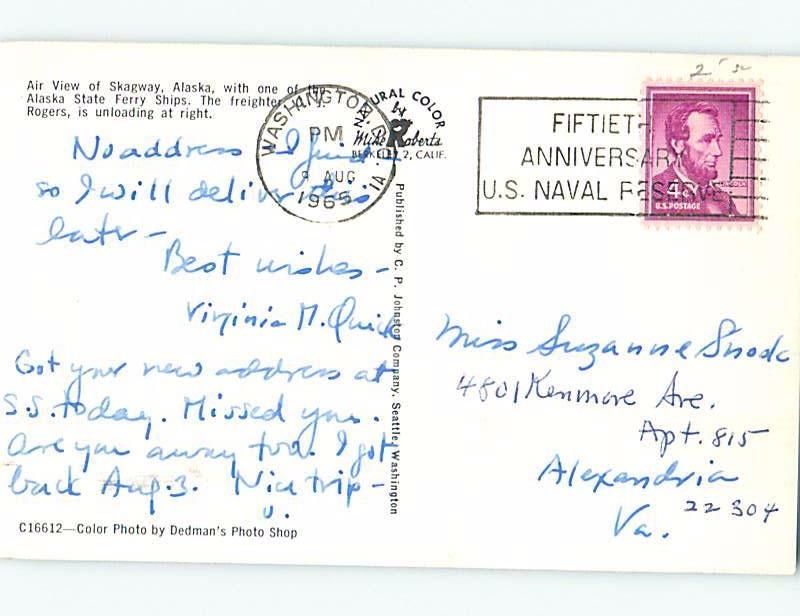 Air View of Skagway, Alaska, with one of the
Alaska State Ferry Ships. The freighter
Rogers, is unloading at right.
No address I find
so I will deliver this
later –
Best wishes –
Virginia M. Quick
Got your new address at
S.S. today. Missed you.
Are you away too. I got
back Aug. 3. Nice trip –
V.
C16612—Color Photo by Dedman's Photo Shop
WASHINGTON, D.C.
PM
9 AUG
1965
NATURAL COLOR
Mike Roberts
BERKELEY 2, CALIF.
Published by C. P. Johnston Company, Seattle, Washington
FIFTIETH
ANNIVERSARY
U.S. NAVAL RESERVE
LINCOLN
4¢
U.S. POSTAGE
Miss Suzanne Snook
4801 Kenmore Ave.
Apt. 815
Alexandria
22304
Va.